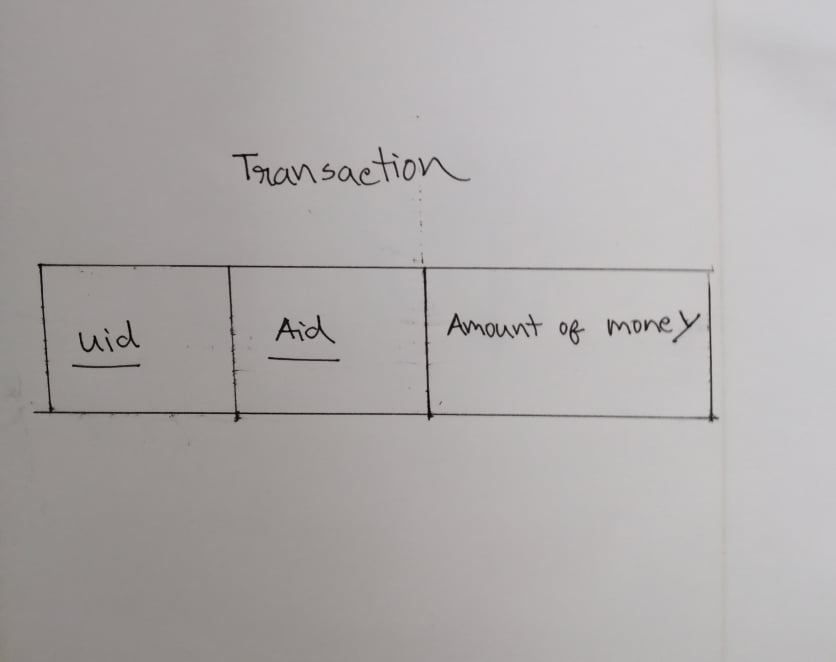 Transaction
uid Aid Amount of money